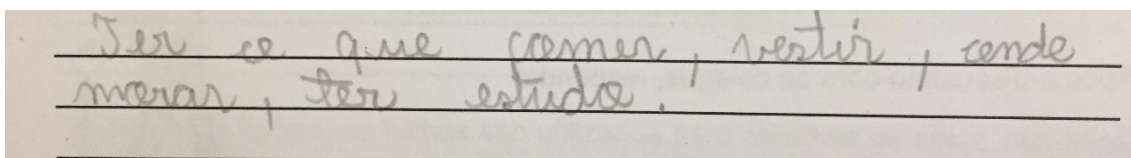 Ter o que comer, vestir, onde
morar, ter estudo.